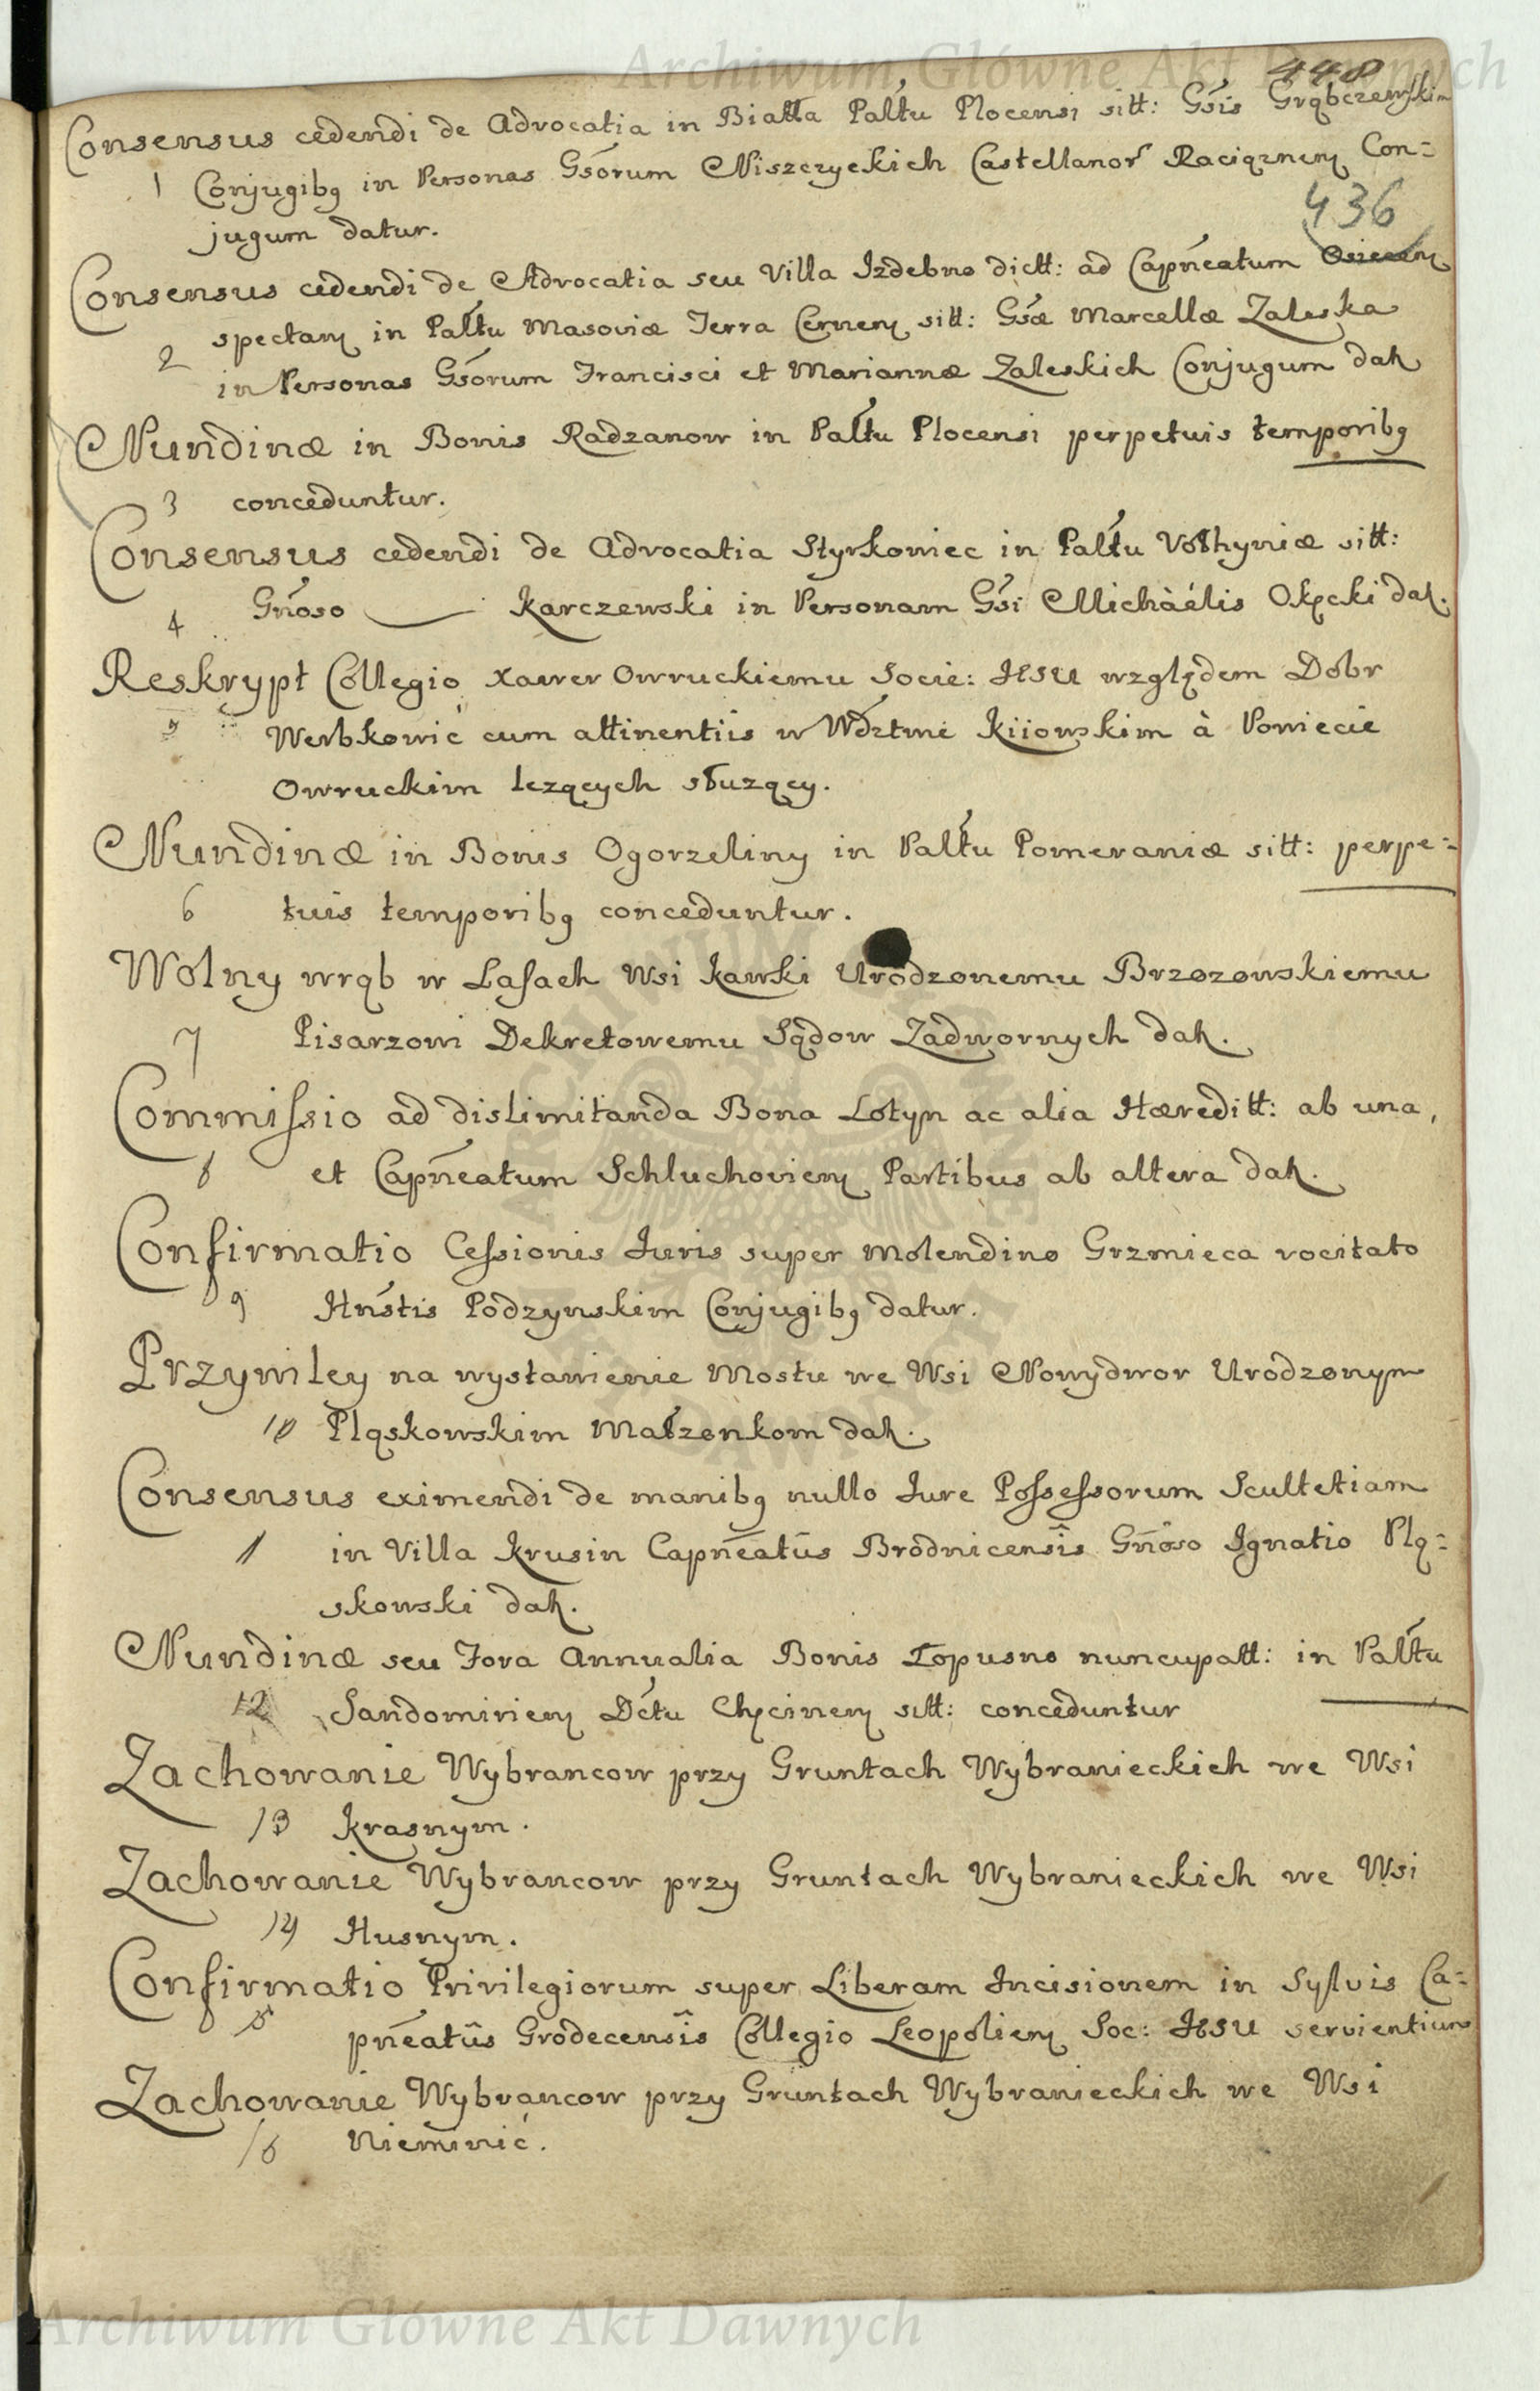 Archiwum Główne Akt Dawnych
448
Consensus cedendi de Advocatia in Białła Pałtu Plocensi sitt: Gsis Grąbczewskim
1 Conjugibq in Personas Gsorum Niszczyckich Castellanor Raciąznen Con=
436
jugum datur.
Consensus cedendi de Advocatia seu Villa Izdebno dictt: ad Capneatum Osiecen
spectan in Pałtu Masoviæ Terra Cernen sitt: Gsæ Marcellæ Zaleska
2 in Personas Gsorum Francisci et Mariannæ Zaleskich Conjugum dat
Nundinæ in Bonis Radzanow in Pałtu Plocensi perpetuis temporibq
3 conceduntur.
Consensus cedendi de Advocatia Styrkowiec in Pałtu Volhyniæ sitt:
4 Gnoso Karczewski in Personam Gsi Michàélis Okęcki dat.
Reskrypt Collegio Xawer Owruckiemu Socie: JESU względem Dobr
5 Werbkowić cum attinentiis w Wdztwie Kiiowskim à Powiecie
Owruckim lezących słuzący.
Nundinæ in Bonis Ogorzeliny in Pałtu Pomeraniæ sitt: perpe=
6 tuis temporibq conceduntur.
Wolny wrąb w Lasach Wsi Kawki Urodzonemu Brzozowskiemu
7 Pisarzowi Dekretowemu Sądow Zadwornych dat.
Commissio ad dislimitanda Bona Lotyn ac alia Hæreditt: ab una,
8 et Capneatum Schluchovien Partibus ab altera dat.
Confirmatio Cessionis Juris super Molendino Grzmieca vocitato
9 Hnstis Podzynskim Conjugibq datur.
Przywiley na wystawienie Mostu we Wsi Nowydwor Urodzonym
10 Pląskowskim Małzonkom dat.
Consensus eximendi de manibq nullo Jure Possessorum Scultetiam
11 in Villa Krusin Capneatûs Brodnicensîs Gnoso Ignatio Plą=
skowski dat.
Nundinæ seu Fora Annualia Bonis Łopuszno nuncupatt: in Pałtu
12 Sandomirien Dctu Chęcinen sitt: conceduntur
Zachowanie Wybrancow przy Gruntach Wybranieckich we Wsi
13 Krasnym.
Zachowanie Wybrancow przy Gruntach Wybranieckich we Wsi
14 Husnym.
Confirmatio Privilegiorum super Liberam Incisionem in Sylvis Ca=
15 pneatûs Grodecensîs Collegio Leopolien Soc: JESU servientium
Zachowanie Wybrancow przy Gruntach Wybranieckich we Wsi
16 Nieminić.
Archiwum Główne Akt Dawnych